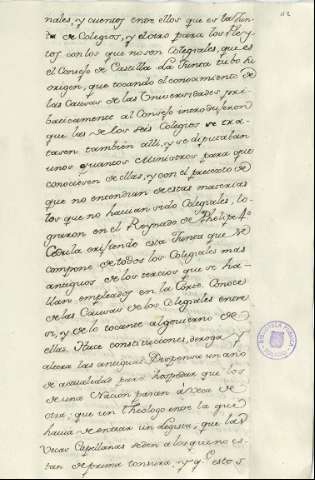 112
nales, y cuentos entre ellos que es la Jun-
ta de Colegios, y el otro para los Pley-
tos con los que no son Colegiales, que es
el Consejo de Castilla. La Junta tubo su
origen, que tocando el conocimiento de
las Causas de las Universidades pri-
bativamente al Consejo introdujeron
que las de los seis Colegios se tra-
tasen tambien alli, y se diputaban
unos quantos Ministros para que
conociesen de ellas, y con el pretexto de
que no entendian de estas materias
los que no hauian sido Colegiales, lo-
graron en el Reynado de Phelipe 4º
Cedula erijendo esta Junta que se
compone de todos los Colegiales mas
antiguos de los tercios que se ha-
llan empleados en la Corte. Conoce
de las Causas de los Colegiales entre
si, y de lo tocante al govierno de
ellas. Hace constituciones, deroga y
altera las antiguas. Dispensa un año
de actualidad para hospedar que los
de una Nacion pasen á veca de
otra, que un Theologo entre la que
havia de entrar un Legista, que las
Vecas Capellanas se den a los que no es-
tan de prima tonsura, y qe estos